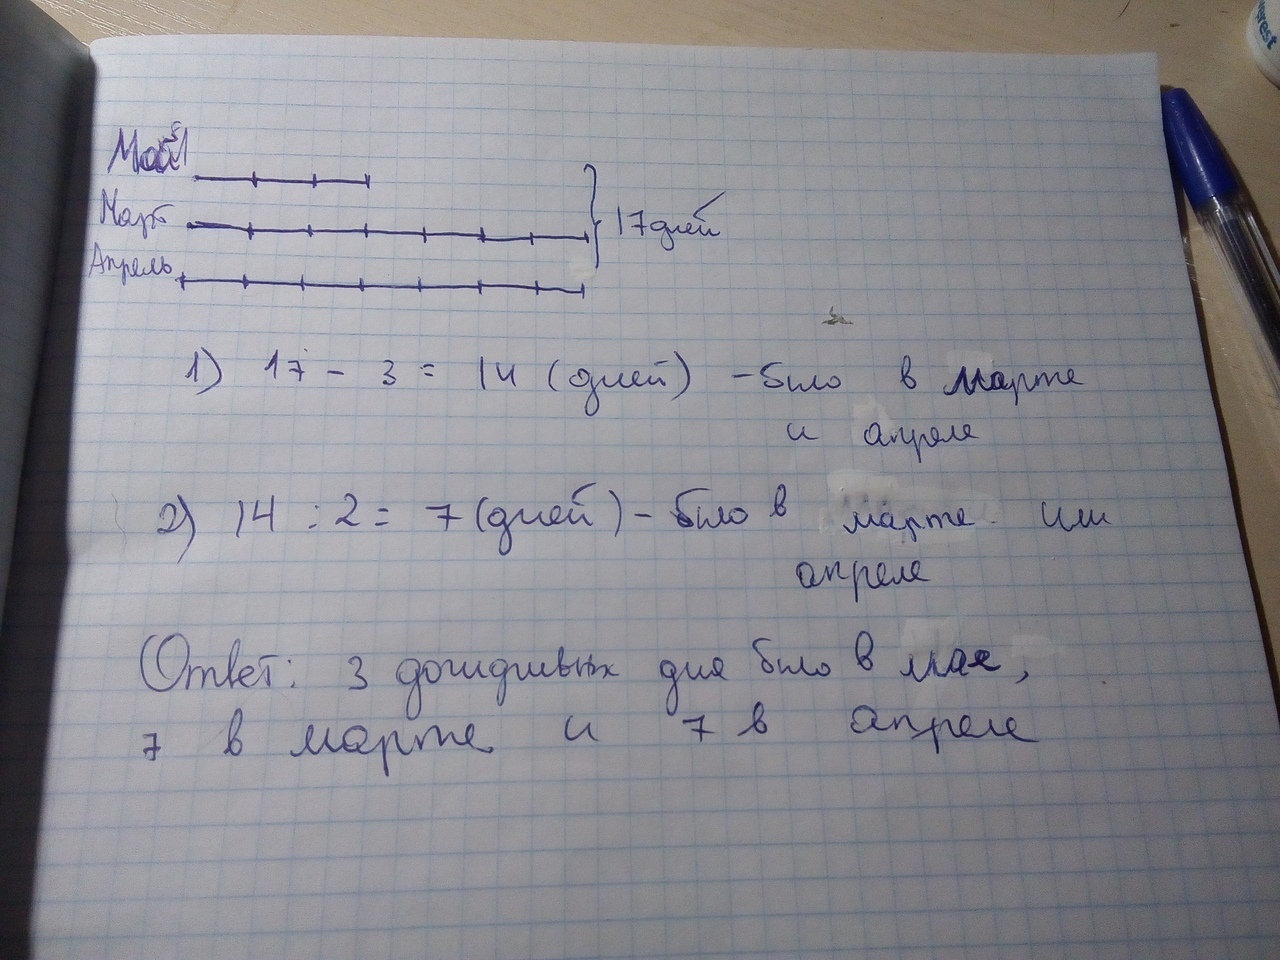 Май
Март
Апрель
17 дней
1) 17 - 3 = 14 (дней) - было в марте
и апреле
2) 14 : 2 = 7 (дней) - было в марте или
апреле
Ответ: 3 дождливых дня было в мае,
7 в марте и 7 в апреле